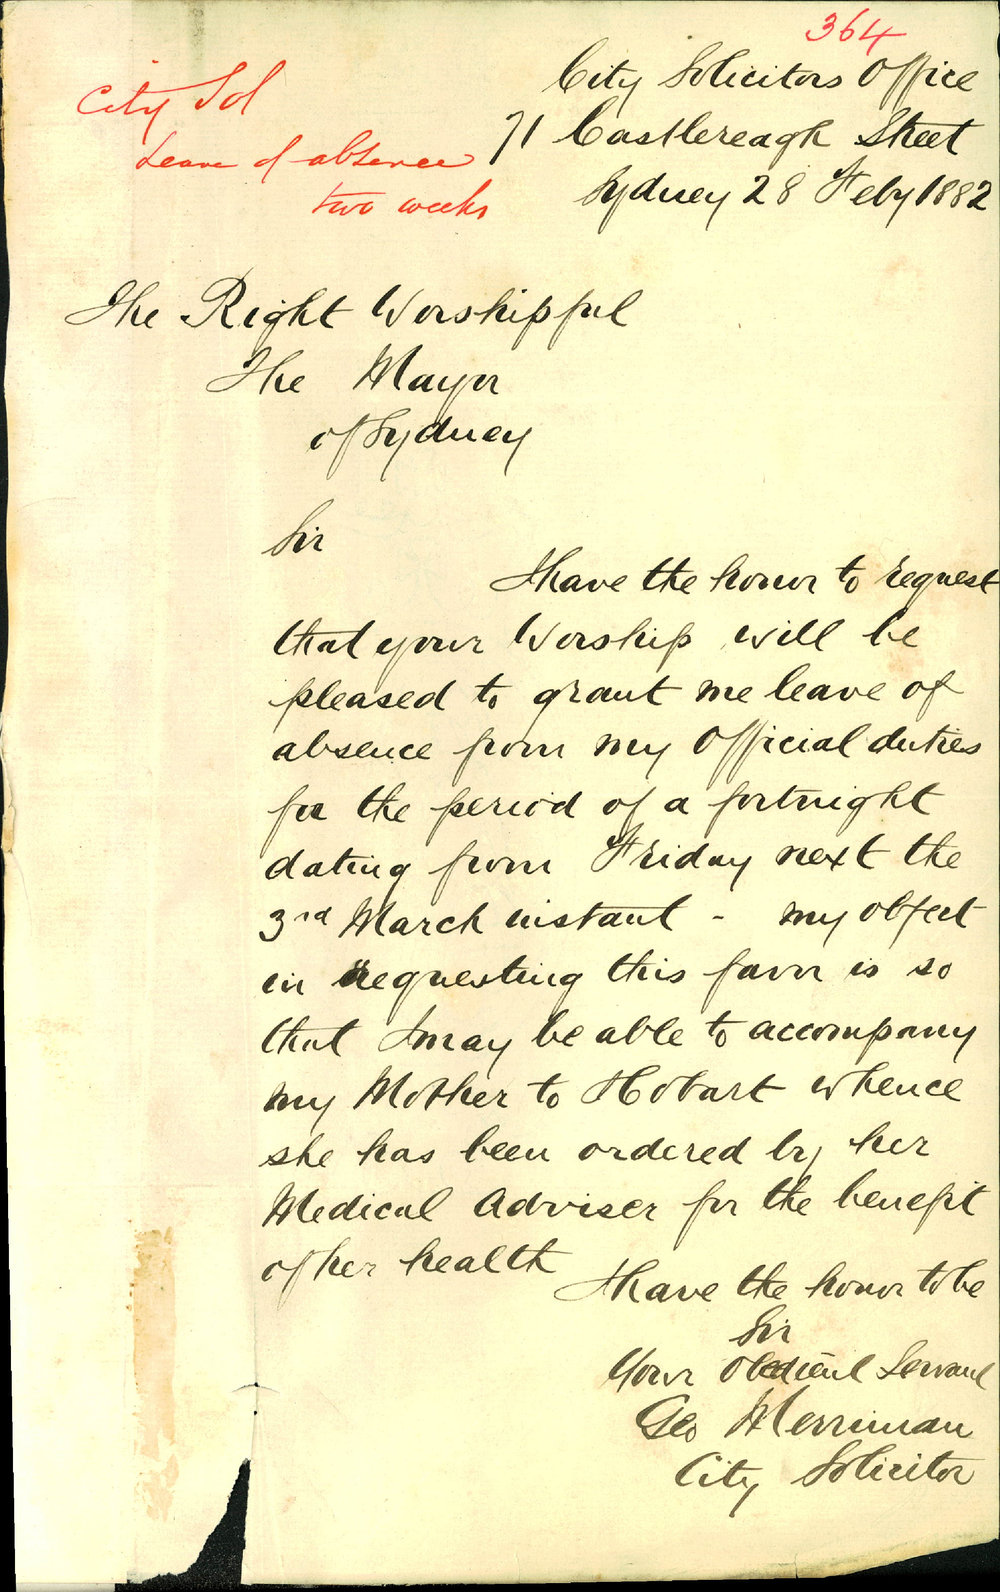 364
City Solicitors Office
71 Castlereagh Street
Sydney 28 Feby 1882
City Sol
Leave of absence
two weeks
The Right Worshipful
The Mayor
of Sydney
Sir
I have the honor to request
that your Worship will be
pleased to grant me leave of
absence from my Official duties
for the period of a fortnight
dating from Friday next the
3rd March instant - my object
in requesting this favor is so
that I may be able to accompany
my Mother to Hobart whence
she has been ordered by her
Medical Adviser for the benefit
of her health
I have the honor to be
Sir
Your Obedient Servant
Geo Merriman
City Solicitor